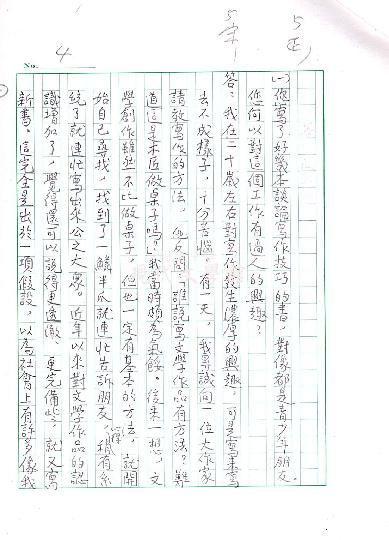 5 正
5 宋
No. 4
(一)你寫了好幾本談論寫作技巧的書，對像都是青少年朋友。
您何以對這個工作有過人的興趣？
答：我在二十歲左右對寫作發生濃厚的興趣，可是寫來寫
去不成樣子，十分苦惱。有一天，我尋試向一位大作家
請教寫作的方法，他反問：誰說寫文學作品有方法？難
道這是木匠做桌子嗎？我當時頗為氣餒。後來一想，文
學創作雖然不比做桌子，但也一定有基本的方法，就開
始自己尋找，找到了一鱗半爪就連忙告訴朋友，稍有系
統了就連忙寫出來公之大眾。近年以來對文學作品的認
識增加了，覺得還可以說得更透徹、更完備些，就又寫
新書。這完全是出於一項假設，以為社會上有許多像我